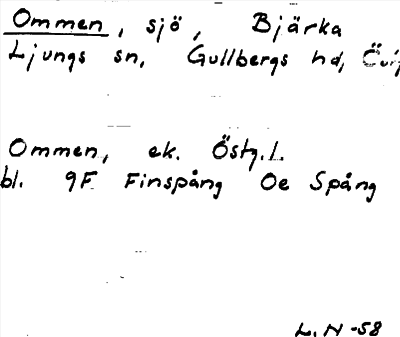 Ommen, sjö, Bjärka
Ljungs sn, Gullbergs hd,
Ommen, ek. Östg.L.
bl. 9F Finspång Oe Spång
L.N -58